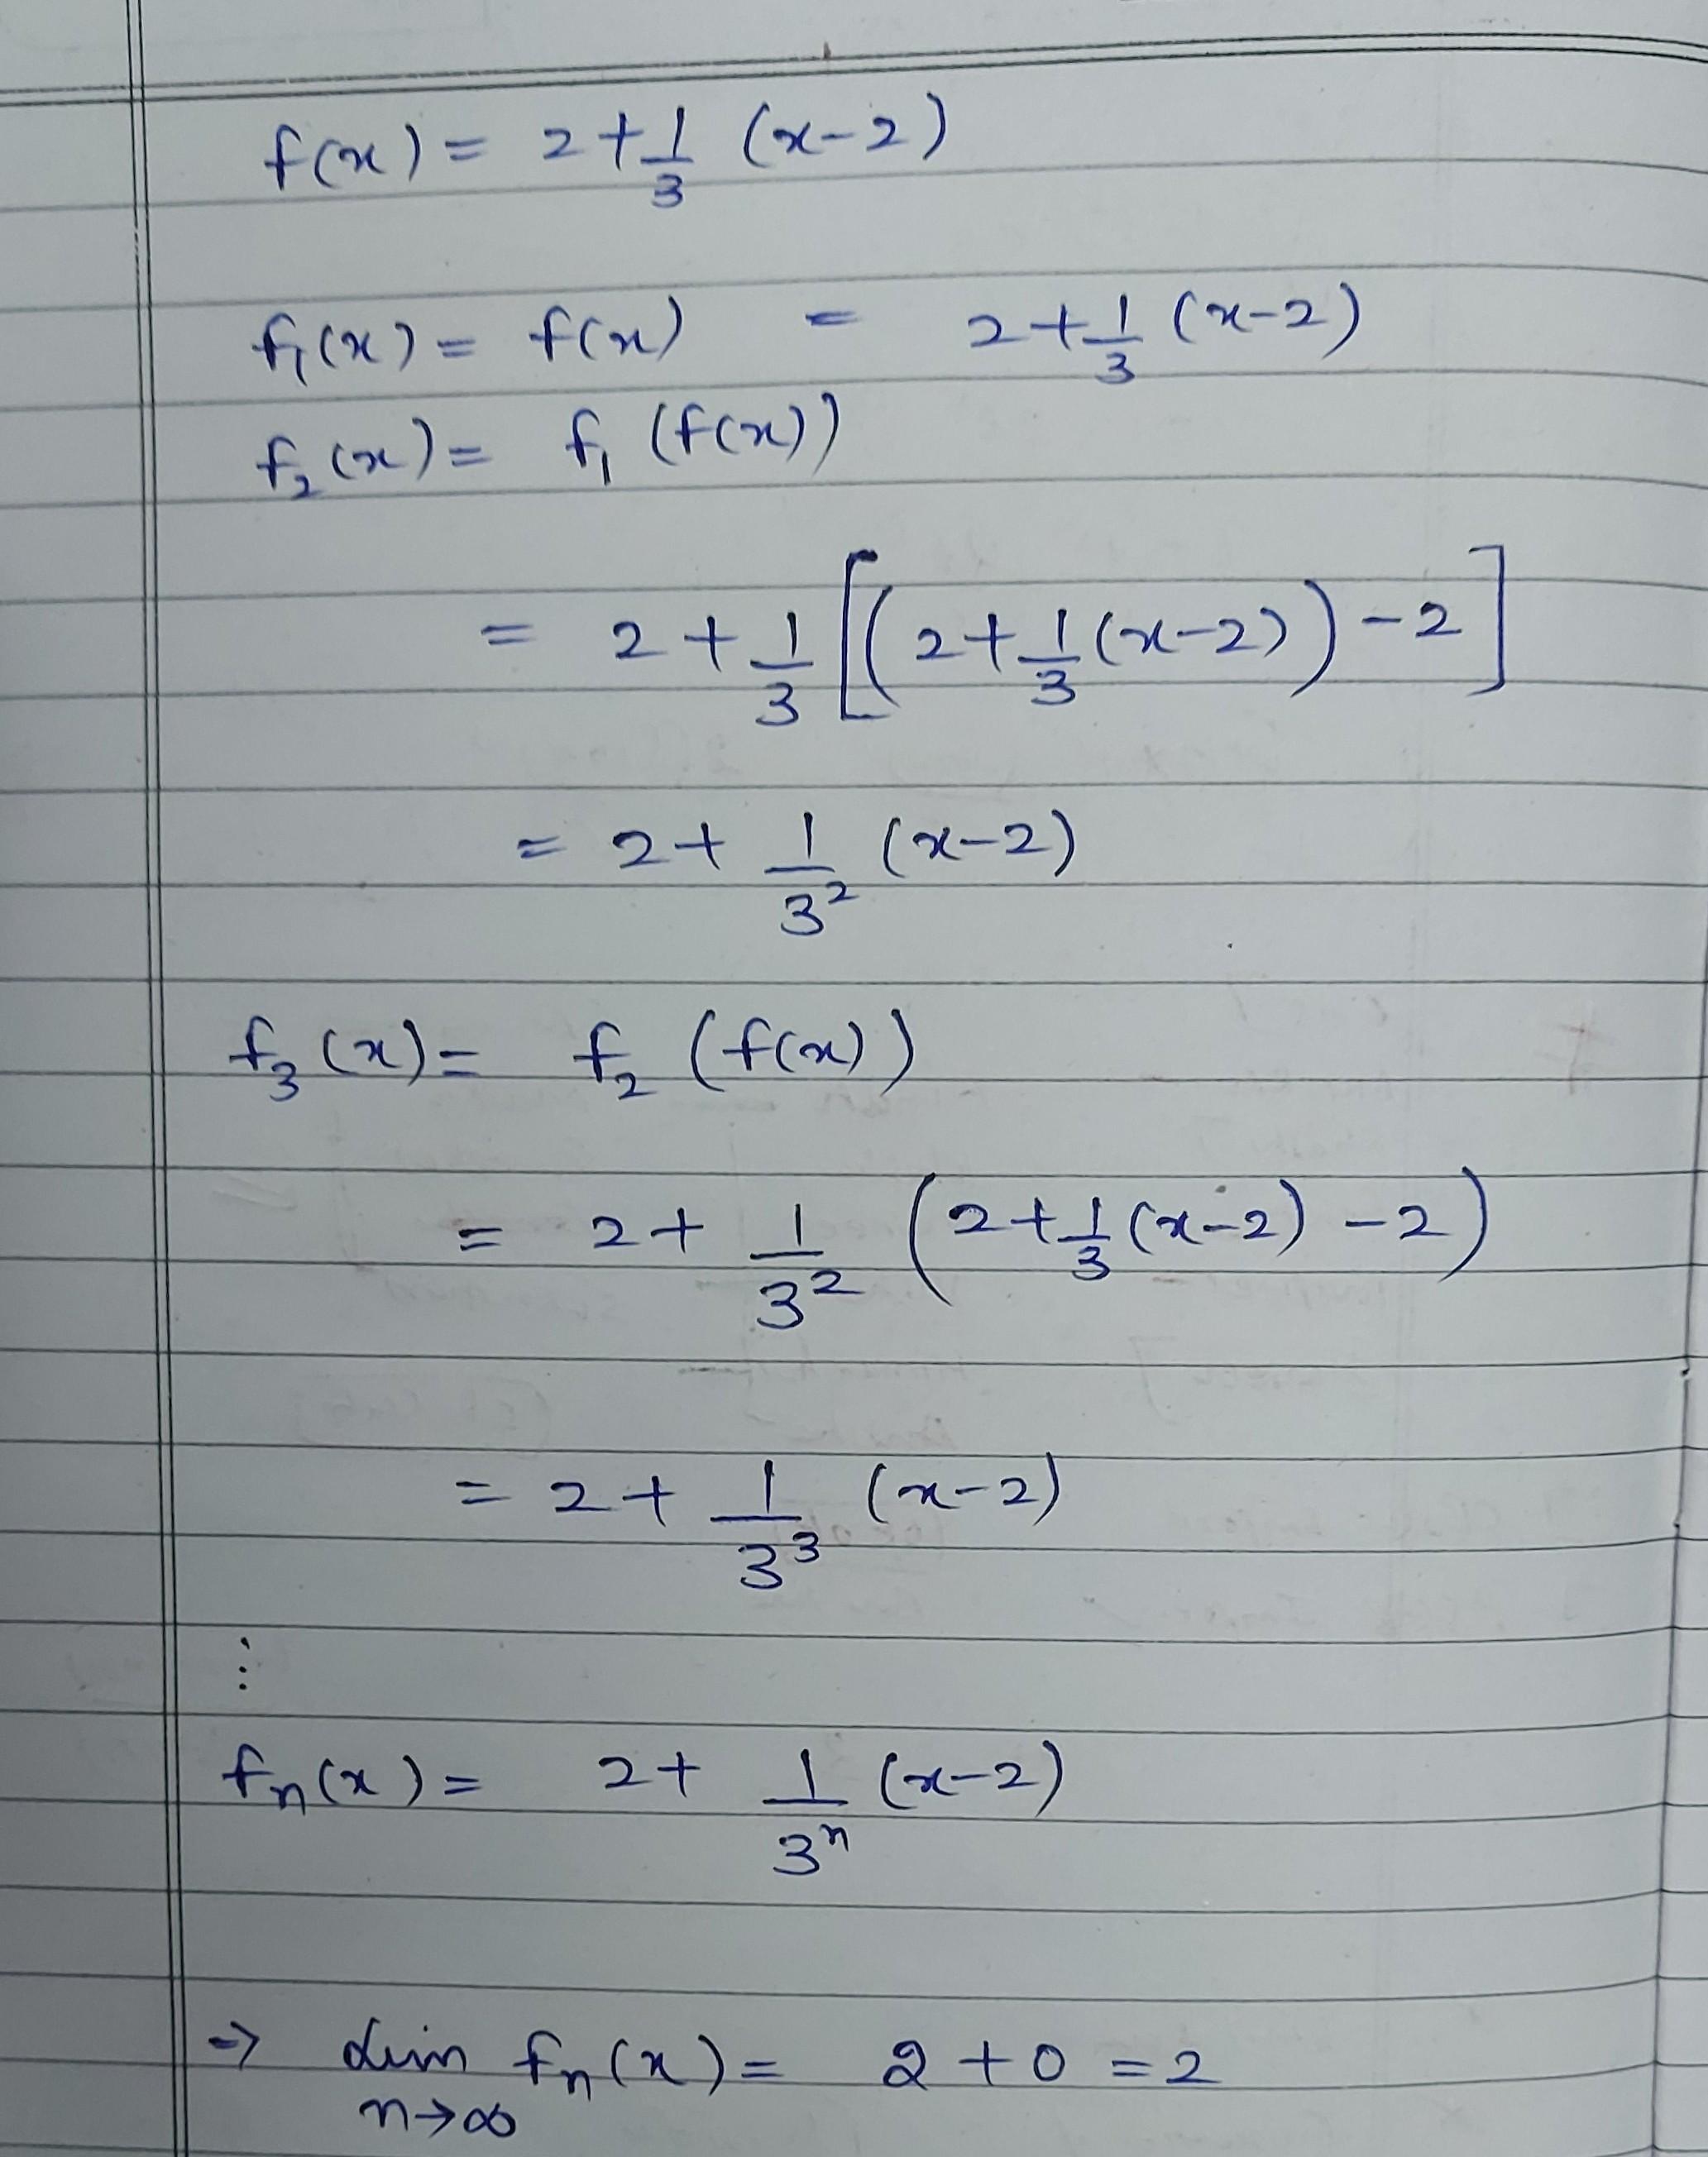 f(x) = 2 + 1/3 (x-2)
f₁(x) = f(x) = 2 + 1/3 (x-2)
f₂(x) = f₁ (f(x))
= 2 + 1/3 [(2 + 1/3 (x-2)) - 2]
= 2 + 1/3² (x-2)
f₃(x) = f₂ (f(x))
= 2 + 1/3² (2 + 1/3 (x-2) - 2)
= 2 + 1/3³ (x-2)
⋮
fₙ(x) = 2 + 1/3ⁿ (x-2)
⇒ lim n→∞ fₙ(x) = 2 + 0 = 2